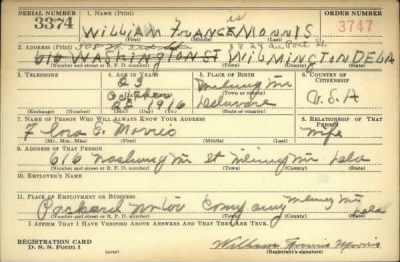 SERIAL NUMBER 1. NAME (Print) ORDER NUMBER
3374 WILLIAM FRANCIS MORRIS 3747
(First) (Middle) (Last)
2. ADDRESS (Print)
616 WASHINGTON ST WILMINGTON DELA
(Number and street or R. F. D. number) (Town) (County) (State)
3. TELEPHONE 4. AGE IN YEARS 5. PLACE OF BIRTH 6. COUNTRY OF CITIZENSHIP
23 Wilming
DATE OF BIRTH
October Delaware U.S.A
1916
(Exchange) (Number) (Mo.) (Day) (Yr.) (State or country)
7. NAME OF PERSON WHO WILL ALWAYS KNOW YOUR ADDRESS 8. RELATIONSHIP OF THAT PERSON
Flora E. Morris wife
(Mr., Mrs., Miss) (First) (Middle) (Last)
9. ADDRESS OF THAT PERSON
616 st Dela
(Number and street or R. F. D. number) (Town) (County) (State)
10. EMPLOYER'S NAME
11. PLACE OF EMPLOYMENT OR BUSINESS
Packard Motor Company Dela
(Number and street or R. F. D. number) (Town) (County) (State)
I AFFIRM THAT I HAVE VERIFIED ABOVE ANSWERS AND THAT THEY ARE TRUE.
REGISTRATION CARD
D. S. S. Form 1 (over) William Francis Morris
(Registrant's signature)